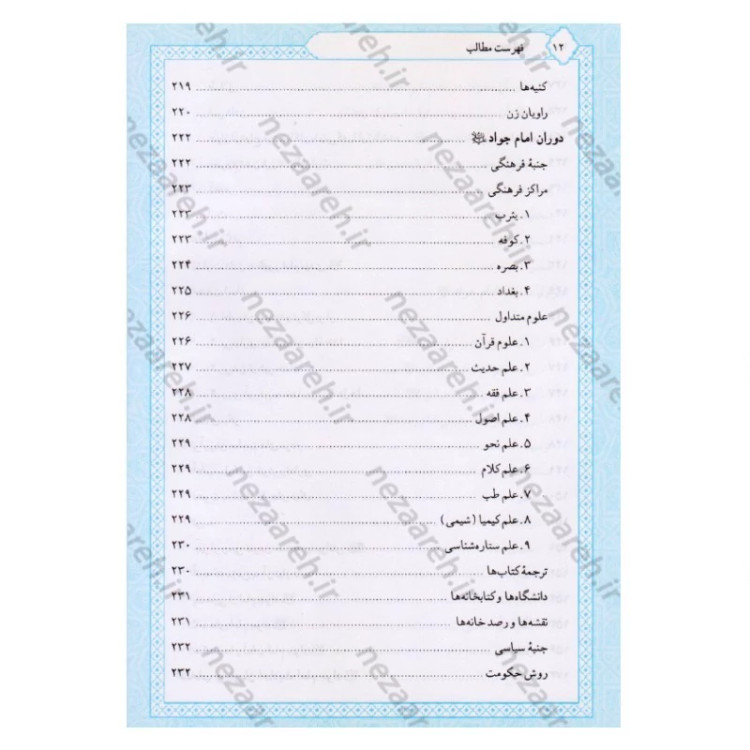 ۱۲ فهرست مطالب
کنیه‌ها ۲۱۹
راویان زن ۲۲۰
دوران امام جواد ۲۲۲
جنبهٔ فرهنگی ۲۲۲
مراکز فرهنگی ۲۲۳
۱. یثرب ۲۲۳
۲. کوفه ۲۲۳
۳. بصره ۲۲۴
۴. بغداد ۲۲۵
علوم متداول ۲۲۶
۱. علوم قرآن ۲۲۶
۲. علم حدیث ۲۲۷
۳. علم فقه ۲۲۸
۴. علم اصول ۲۲۸
۵. علم نحو ۲۲۹
۶. علم کلام ۲۲۹
۷. علم طب ۲۲۹
۸. علم کیمیا (شیمی) ۲۲۹
۹. علم ستاره‌شناسی ۲۳۰
ترجمهٔ کتاب‌ها ۲۳۰
دانشگاه‌ها و کتابخانه‌ها ۲۳۱
نقشه‌ها و رصد خانه‌ها ۲۳۱
جنبهٔ سیاسی ۲۳۲
روش حکومت ۲۳۲
nezaareh.ir